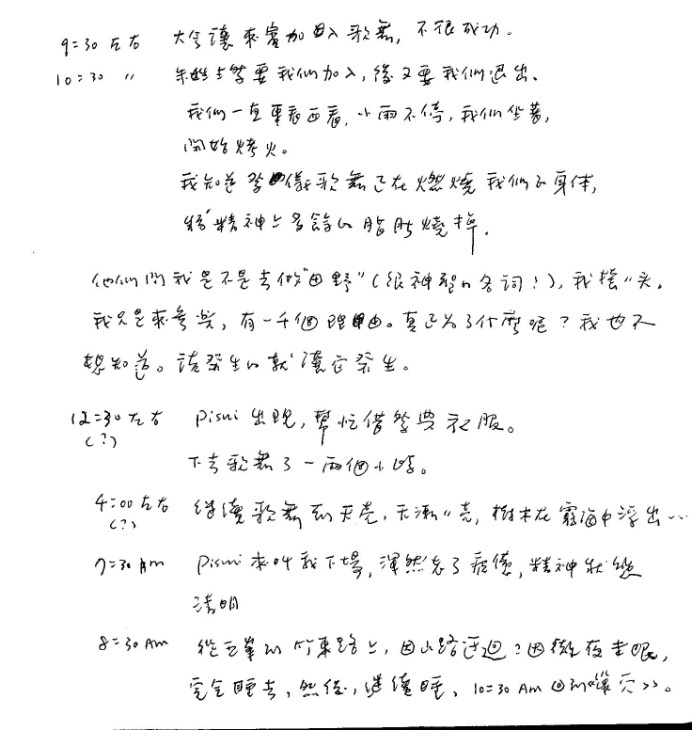 9:30 左右 大會讓來賓加入歌舞,不很成功。
10:30 〃 朱姓長老要我們加入,後又要我們退出、
我們一直東看西看,小雨不停,我們坐著,
開始烤火。
我知道 祭儀歌舞正在燃燒我們的身体,
將精神上多餘的脂肪燒掉.
他們問我是不是去做"田野"(很神聖的名詞!),我搖〃头。
我只是來參與,有一千個理由。真正為了什麼呢?我也不
想知道。該發生的就讓它發生。
12:30左右 Pisui 出現,幫忙借 衣服。
(?)
下去歌舞了一兩個小時。
4:00左右 繼續歌舞到天亮,天漸〃亮,樹木在霧海中浮出…
(?)
7:30 Am Pisui 來叫我下場,渾然忘了疲憊,精神狀態
清明
8:30 Am 從五峯到竹東路上,因山路迂迴?因徹夜未眠,
完全睡去,然後,繼續睡、10:30 Am 回到 穴》。